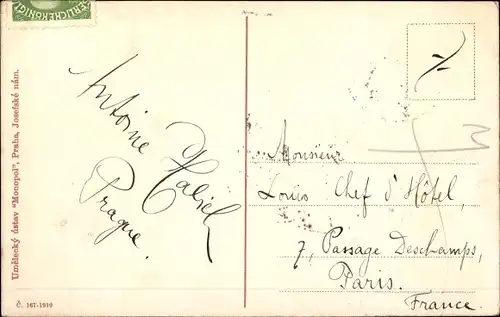 ERLICHEKÖNIGL
Umělecký ústav "Monopol", Praha, Josefské nám.
Č. 167-1910
Antoine
Prague.
7
Monsieur
Louis Chef d'Hôtel,
7, Passage Deschamps,
Paris.
France.